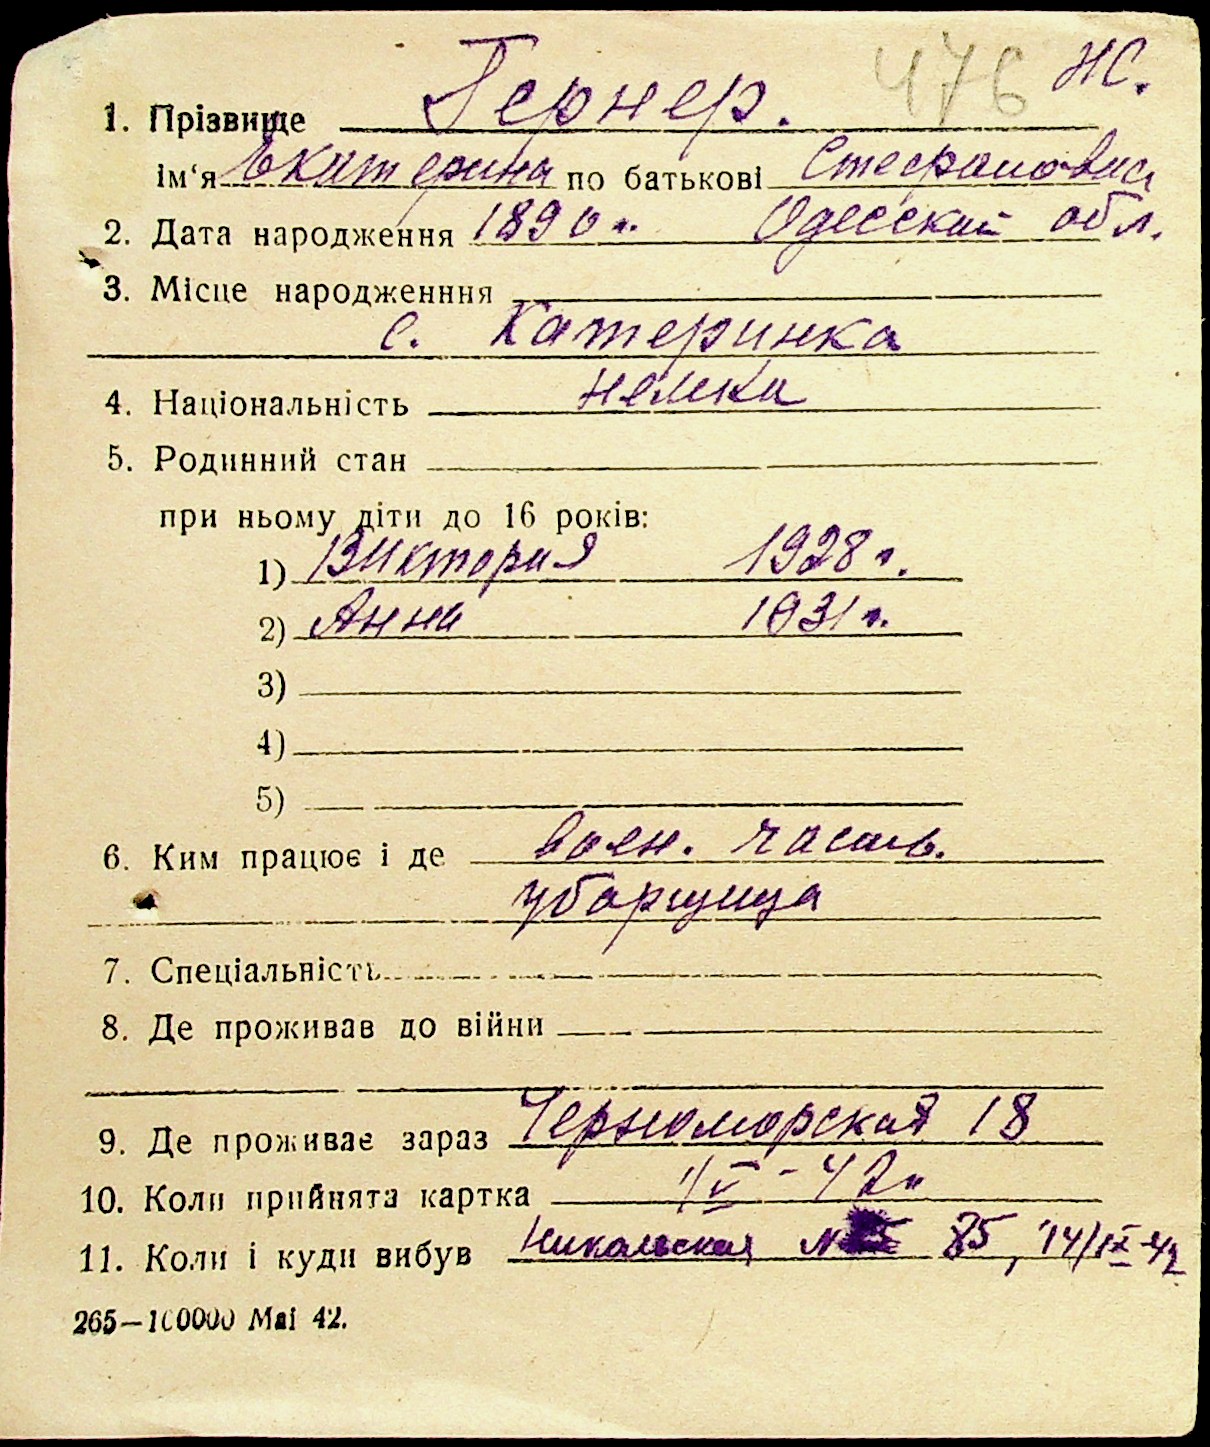 476 НС.
1. Прізвище Гернер.
ім‘я Екатерина по батькові Стефановна
2. Дата народження 1890 г. Одесской обл.
3. Місце народженння
с. Катеринка
4. Національність немка
5. Родинний стан
при ньому діти до 16 років:
1) Виктория 1928 г.
2) Анна 1931 г.
3)
4)
5)
6. Ким працює і де воен. часть.
уборщица
7. Спеціальність
8. Де проживав до війни
9. Де проживає зараз Черноморская 18
10. Коли прийнята картка 1/V - 42 г
11. Коли і куди вибув Никольская № 85, 14/IX-42
265—100000 Маі 42.